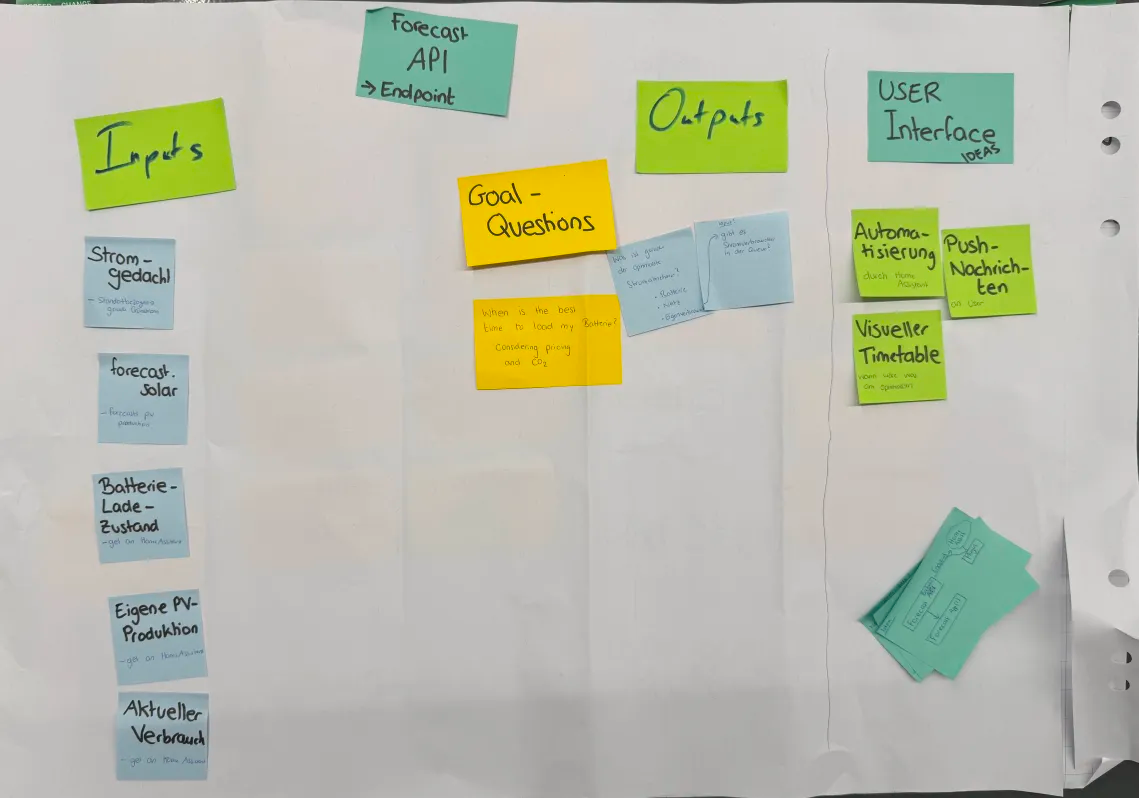 Forecast
API
→ Endpoint
Inputs
Strom-
gedacht
forecast.
solar
- forecasts pv
production
Batterie-
Lade-
Zustand
- get on Home Assistant
Eigene PV-
Produktion
- get on Home Assistant
Aktueller
Verbrauch
- get on Home Assistant
Goal-
Questions
When is the best
time to load my Batterie?
Considering pricing
and CO2
Outputs
Was ist gerade
die optimale
• Batterie
• Netz
gibt es
Stromverbraucher
in der Queue?
USER
Interface
IDEAS
Automa-
tisierung
durch Home
Assistant
Push-
Nachrich-
ten
an User
Visueller
Timetable
wann was
am optimalsten
Forecast API
Forecast